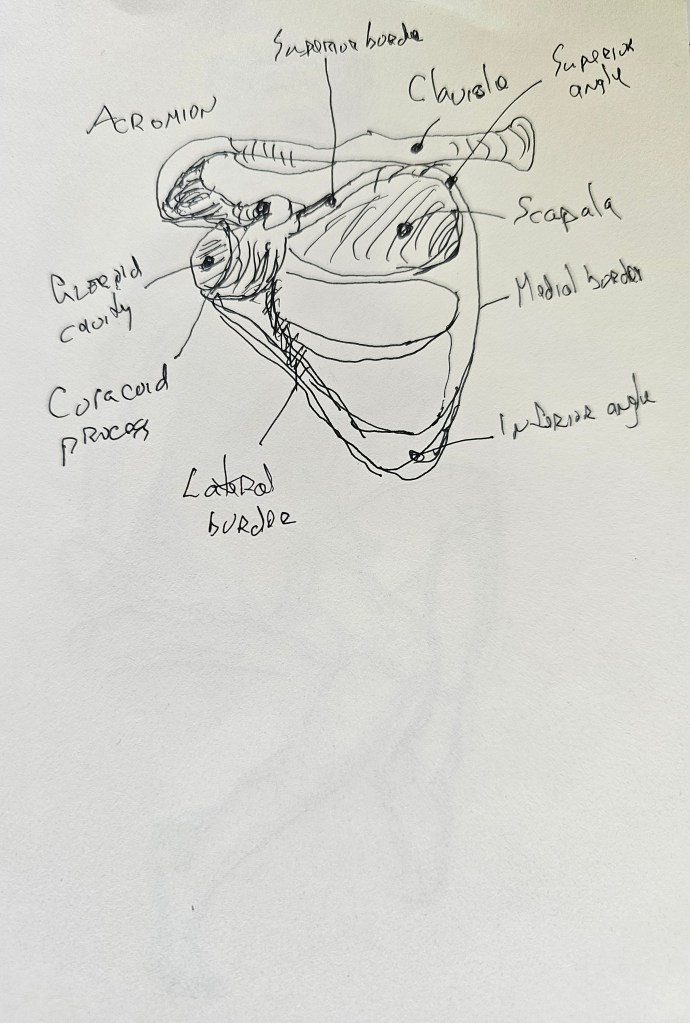 Superior border
Superior
angle
Clavicle
ACROMION
Scapala
Glenoid
cavity
Medial border
Coracoid
process
Inferior angle
Lateral
border